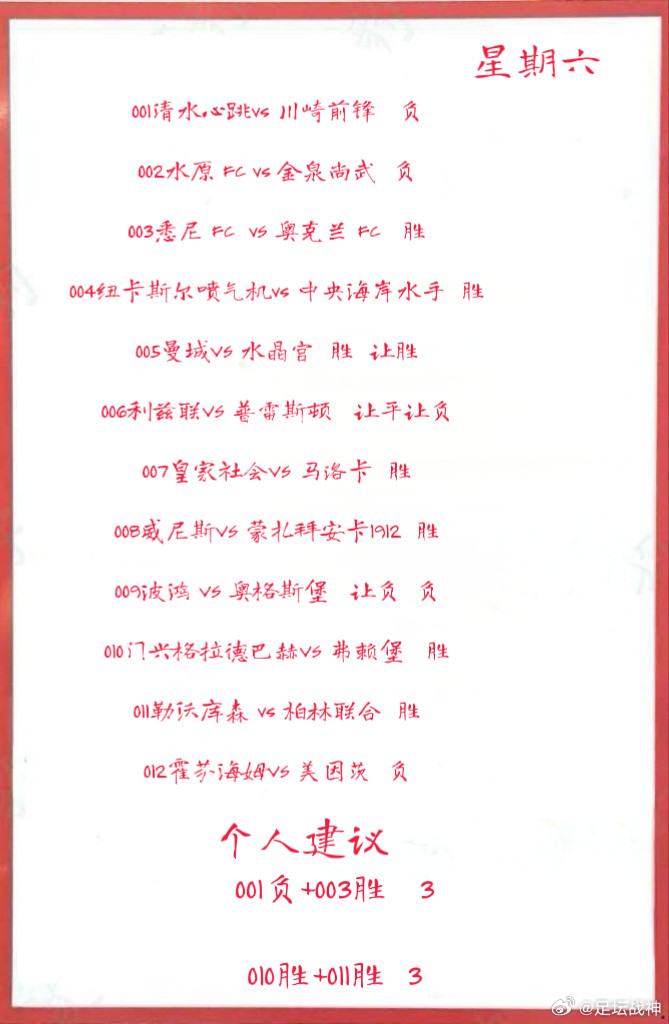 星期六
001清水心跳vs 川崎前锋 负
002水原 FC vs 金泉尚武 负
003悉尼 FC vs 奥克兰 FC 胜
004纽卡斯尔喷气机vs 中央海岸水手 胜
005曼城vs 水晶宫 胜 让胜
006利兹联vs 普雷斯顿 让平让负
007皇家社会vs 马洛卡 胜
008威尼斯vs 蒙扎拜安卡1912 胜
009波鸿 vs 奥格斯堡 让负 负
010门兴格拉德巴赫vs 弗赖堡 胜
011勒沃库森 vs 柏林联合 胜
012霍芬海姆vs 美因茨 负
个人建议
001负+003胜 3
010胜+011胜 3
@足坛战神